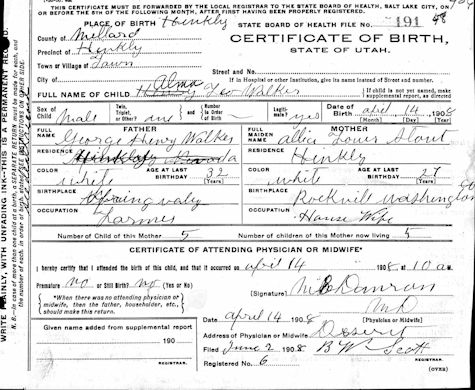 THIS CERTIFICATE MUST BE FORWARDED BY THE LOCAL REGISTRAR TO THE STATE BOARD OF HEALTH, SALT LAKE CITY, ON
OR BEFORE THE 5TH OF THE FOLLOWING MONTH, AFTER FIRST HAVING BEEN PROPERLY REGISTERED.
PLACE OF BIRTH Hinkly STATE BOARD OF HEALTH FILE NO. 191
County of Millard
Precinct of Hinkly
Town or Village of Town
City of
CERTIFICATE OF BIRTH,
STATE OF UTAH.
Street and No.
If in Hospital or other Institution, give its name instead of Street and No.
FULL NAME OF CHILD Alma Leo Walker
If child is not named, make supplemental report, as directed
Sex of Child Male Twin, Triplet, or other? one and Number in Order of Birth Legitimate? yes Date of Birth april 14 1908
(Month) (Day) (Year)
FATHER
FULL NAME George Henry Walker
RESIDENCE Hinkley
COLOR white AGE AT LAST BIRTHDAY 32 (Years)
BIRTHPLACE Spring
OCCUPATION Farmer
MOTHER
FULL MAIDEN NAME Stout
RESIDENCE Hinkly
COLOR white AGE AT LAST BIRTHDAY 27 (Years)
BIRTHPLACE Rockvill Washington Co
OCCUPATION House Wife
Number of Child of this Mother 5 Number of children of this Mother now living 5
CERTIFICATE OF ATTENDING PHYSICIAN OR MIDWIFE*
I hereby certify that I attended the birth of this child, and that it occurred on april 14 1908 at 10 am
Premature no or Still Birth? no (Yes or No)
*When there was no attending physician or midwife, then the father, householder, etc., should make this return.
(Signature)
MD
(Physician or Midwife)
april 14 1908
Address of Physician or Midwife Deseret
Given name added from supplemental report
190
REGISTRAR.
Filed June 2 1908 B W Scott
Registered No. 6 REGISTRAR.
(OVER)
WRITE PLAINLY, WITH UNFADING INK—THIS IS A PERMANENT RECORD.